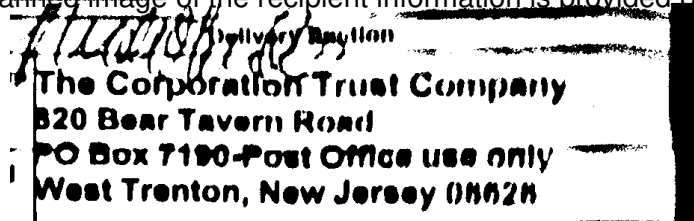 anned image of the recipient information is provided
Delivery Section
The Corporation Trust Company
820 Bear Tavern Road
PO Box 7190-Post Office use only
West Trenton, New Jersey 08628